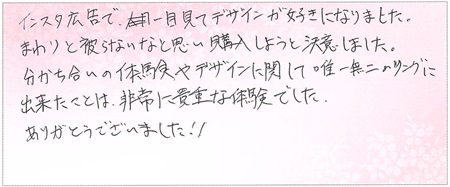 インスタ広告で、一目見てデザインが好きになりました。
まわりと被らないなと思い購入しようと決意しました。
分かち合いの体験やデザインに関して唯一無二のリングに
出来たことは、非常に貴重な体験でした。
ありがとうございました!!